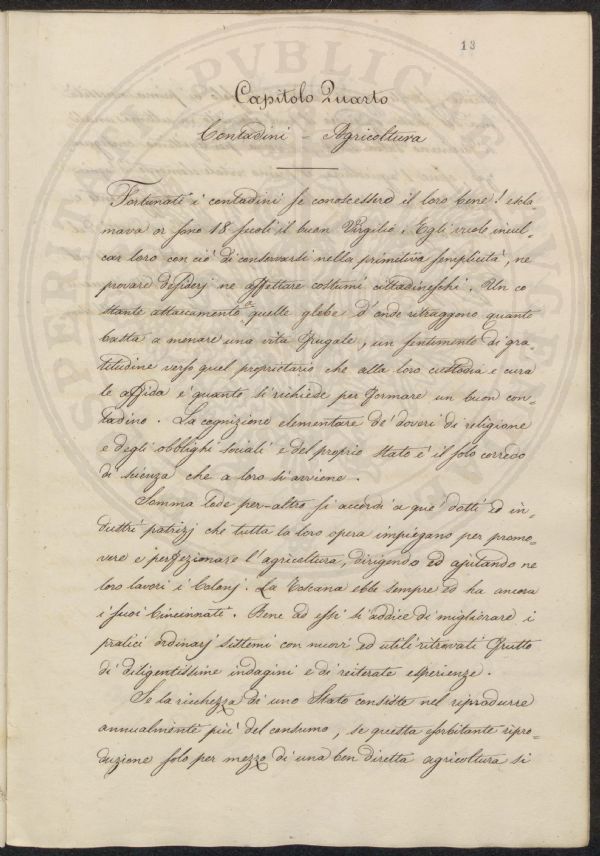 13
Capitolo Quarto
Contadini - Agricoltura
Fortunati i contadini se conoscessero il loro bene! escla-
mava or sono 18 secoli il buon Virgilio. Egli vuole incul-
car loro con ciò di conservarsi nella primitiva semplicità, ne
provare desiderj ne affettare costumi cittadineschi. Un co
stante attaccamento a quelle glebe d'onde ritraggono quanto
basta a menare una vita frugale, un sentimento di gra-
titudine verso quel proprietario che alla loro custodia e cura
le affida è quanto si richiede per formare un buon con-
tadino. La cognizione elementare de' doveri di religione
e degli obblighi sociali e del proprio stato è il solo corredo
di scienza che a loro si avviene.
Somma lode per-altro si accordi a que' dotti ed in-
dustri patrizj che tutta la loro opera impiegano per promo-
vere e perfezionare l'agricoltura, dirigendo ed ajutando ne
loro lavori i Colonj. La Toscana ebbe sempre ed ha ancora
i suoi Cincinnati. Bene ad essi si addice di migliorare i
pratici ordinarj sistemi con nuovi ed utili ritrovati frutto
di diligentissime indagini e di reiterate esperienze.
Se la ricchezza di uno Stato consiste nel riprodurre
annualmente più del consumo, se questa esorbitante ripro-
duzione solo per mezzo di una ben diretta agricoltura si